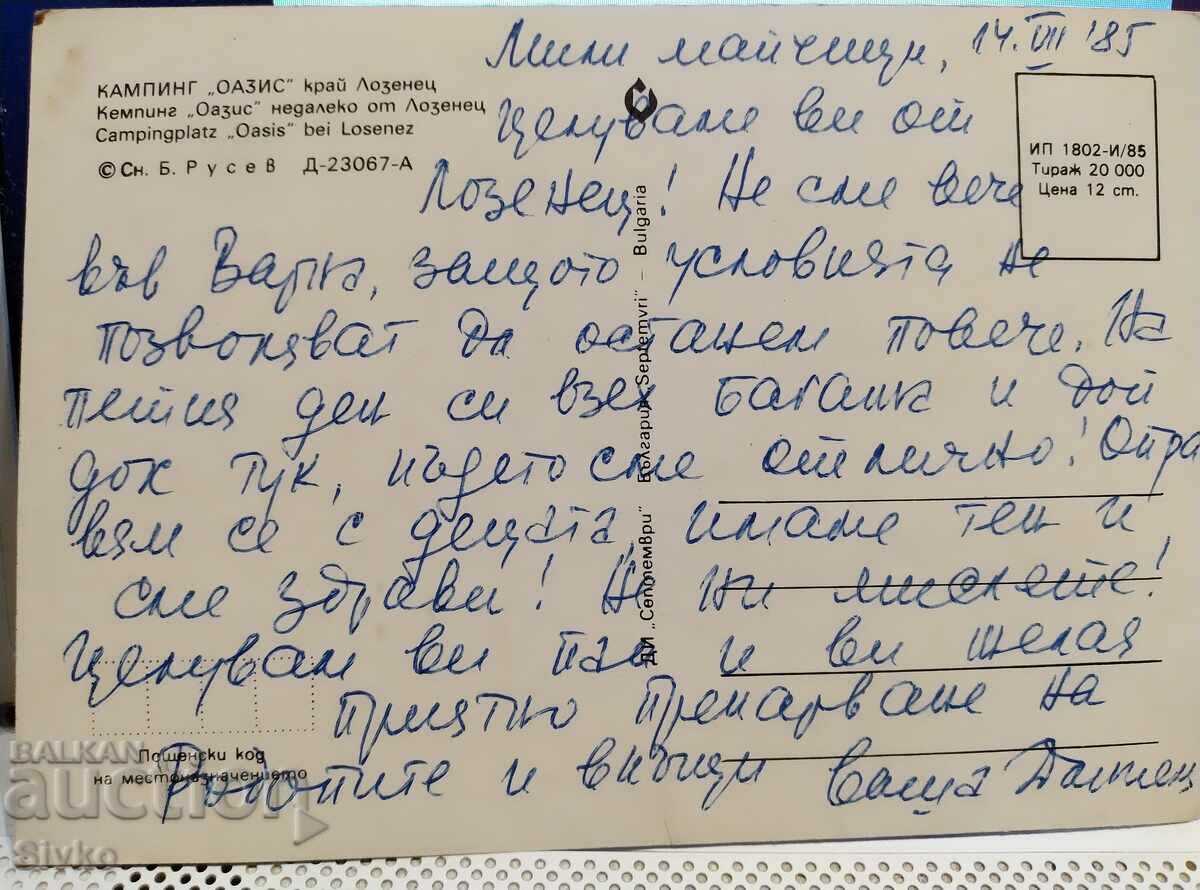 КАМПИНГ „ОАЗИС" край Лозенец
Кемпинг „Оазис" недалеко от Лозенец
Campingplatz „Oasis" bei Losenez
© Сн. Б. Русев Д-23067-А
ИП 1802-И/85
Тираж 20 000
Цена 12 ст.
ДИ „Септември" България „Septemvri" – Bulgaria
Мили майчици, 14.VII '85
Целуваме ви от
Лозенец! Не сме вече
във Варна, защото условията не
позволяват да останем повече. На
петия ден си взех багажа и дой
дох тук, където сме отлично! Опра
вям се с децата, имаме тен и
сме здрави! Не ни мислете!
Целувам ви пак и ви желая
приятно прекарване на
Родопите и внуци ваша
Пощенски код
на местоназначението
BALKAN
auction
Sivko